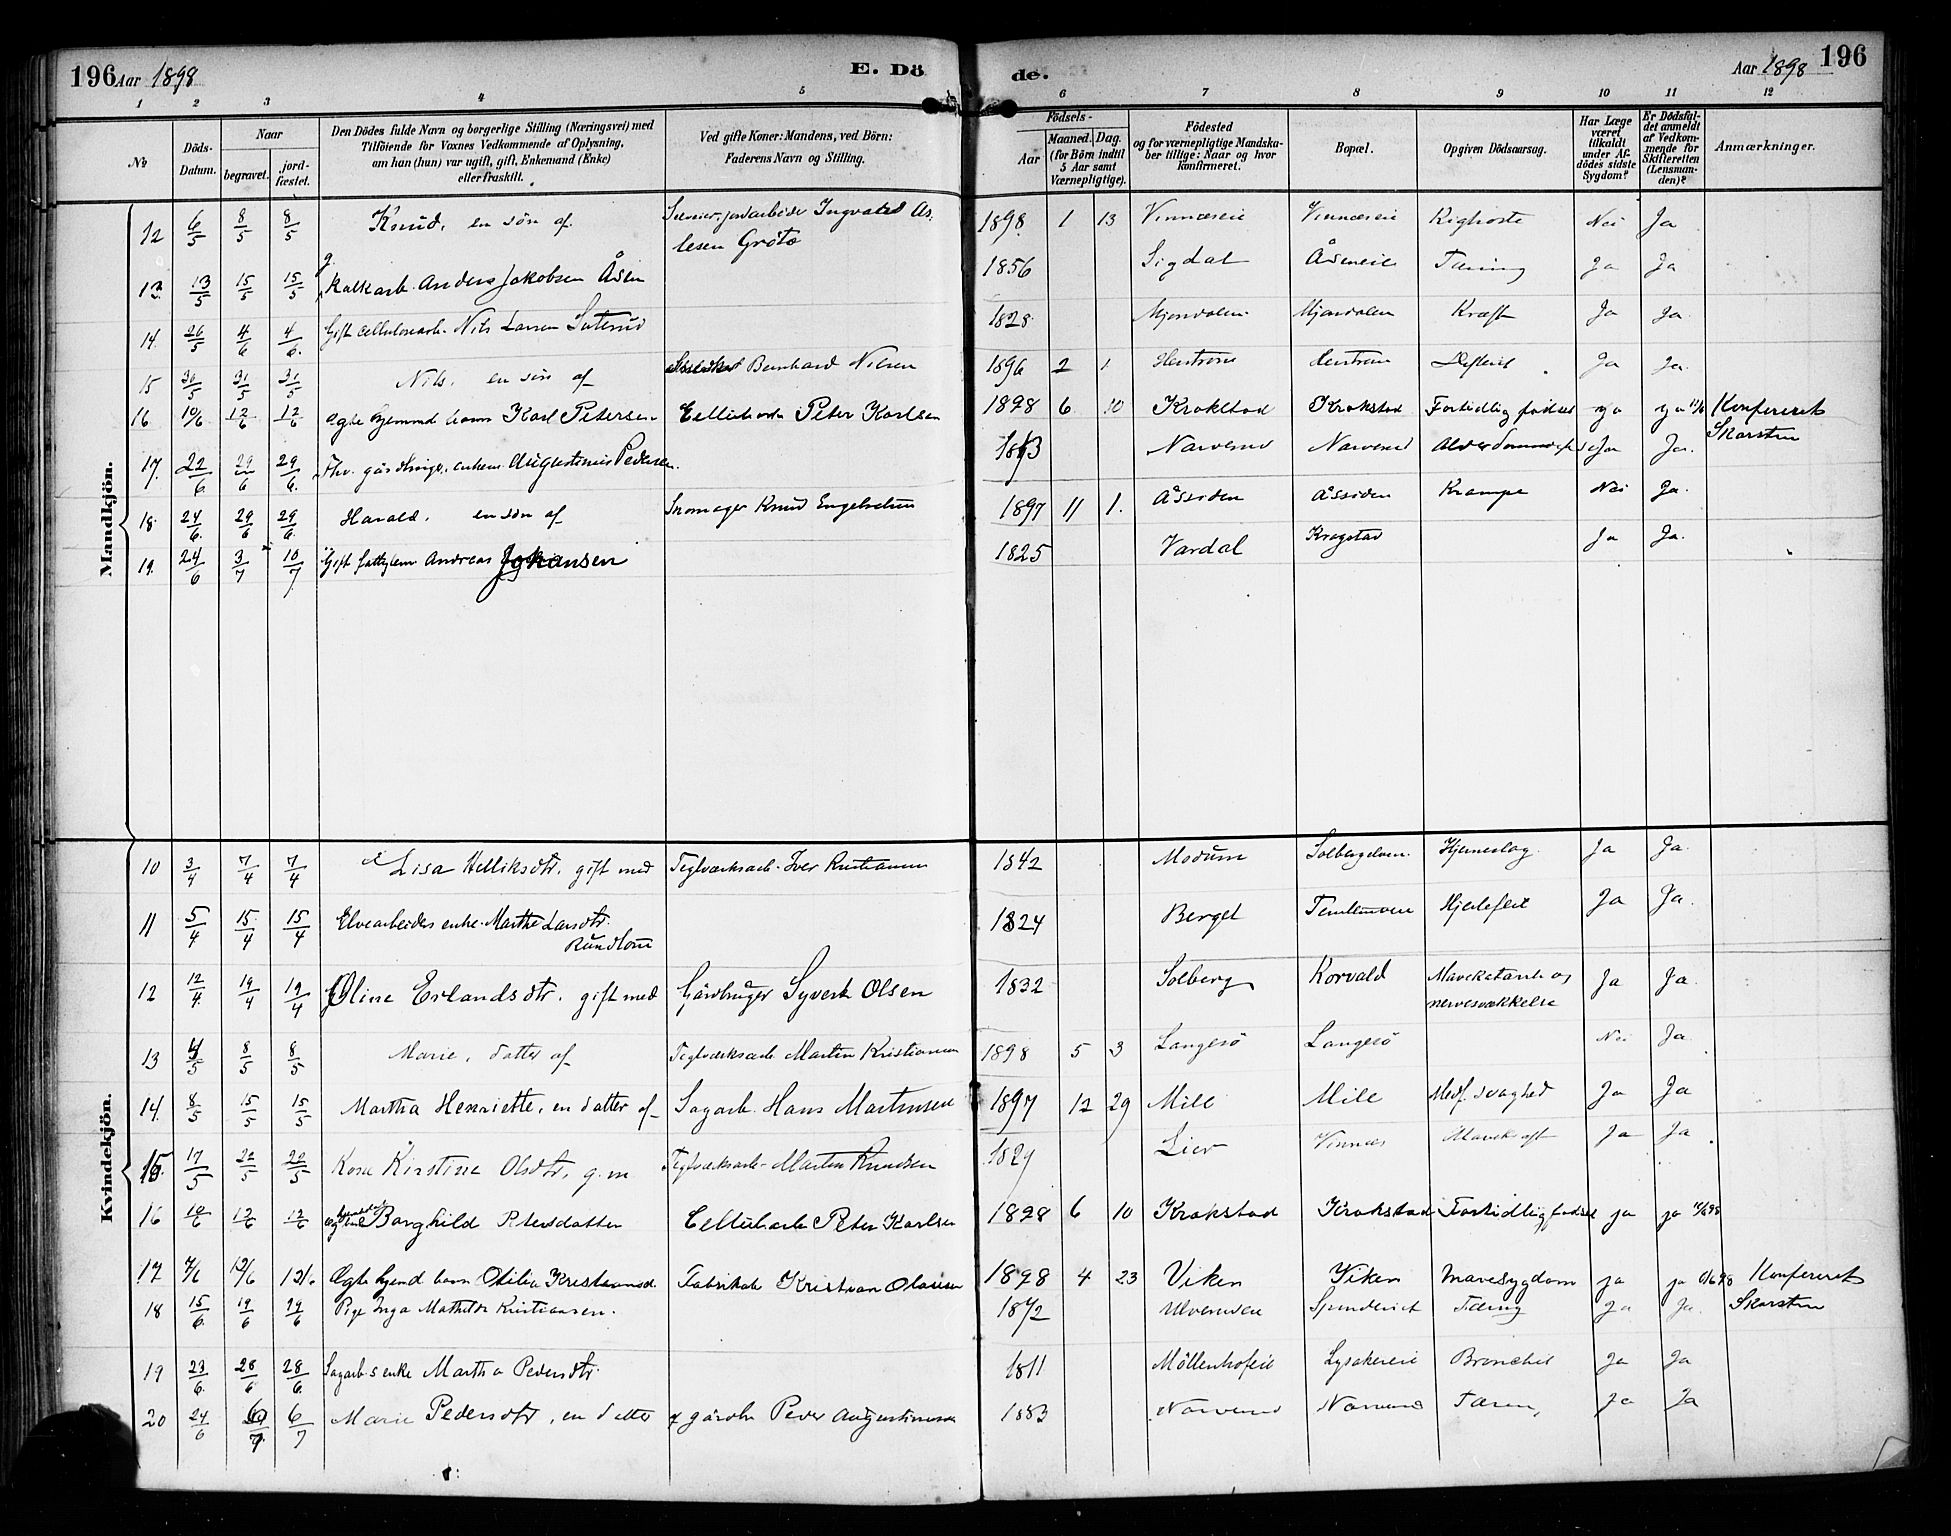 196 Aar 1898 E. Dö de. Aar 1898 196
1 2 3 4 5 6 7 8 9 10 11 12
No Döds-Datum. Naar begravet. jordfæstet. Den Dödes fulde Navn og borgerlige Stilling (Næringsvei) med Tilföiende for Voxnes Vedkommende af Oplysning, om han (hun) var ugift, gift, Enkemand (Enke) eller fraskilt. Ved gifte Koner: Mandens, ved Börn: Faderens Navn og Stilling. Födsels- Aar Maaned. Dag. (for Börn indtil 5 Aar samt Værnepligtige). Födested og for værnepligtige Mandskaber tillige: Naar og hvor konfirmeret. Bopæl. Opgiven Dödsaarsag. Har Læge været tilkaldt under Afdödes sidste Sygdom? Er Dödsfaldet anmeldt af Vedkommende for Skifteretten (Lensmanden)? Anmærkninger.
Mandkjön.
12 6/5 8/5 8/5 Knud, en sön af Jordarbeider Ingvald Aslesen Gröto 1898 1 13 Vinnæseie Vinnæseie Kighoste Nei Ja
13 13/5 15/5 15/5 g. Kalkarb. Anders Jakobsen Åsen 1856 Sigdal Åseneie Tæring Ja Ja
14. 26/5 4/6 4/6 Gift cellulosearb. Nils Larsen 1828 Mjøndalen Mjøndalen Kræft Ja Ja
15 30/5 31/5 31/5 Nils, en sön af Bernhard Nilsen 1896 2 1 Ja Ja
16 10/6 12/6 12/6 Ægte hjemmd. barn Karl Petersen Cellulosearb Peter Karlsen 1898 6 10 Krokstad Krokstad Fortidlig födsel ja ja 11/6 Konfereret Skarsten
17. 22/6 29/6 29/6 Fhv. gårdbruger, enkem. Augustinus Pedersen. Narverud Narverud Ja Ja.
18. 24/6 29/6 29/6 Harald, en sön af Skomager Knud Engebretsen 1897 11 1. Åssiden Åssiden Krampe Nei Ja.
19. 24/6 3/7 10/7 Gift fattiglem Andreas Johansen 1825 Vardal Krogstad Ja Ja.
Kvindekjön.
10 3/4 7/4 7/4 Lisa Helliksdtr. gift med Teglværksarb. Iver Kristiansen 1842 Modum Solbergelven. Hjerneslag Ja Ja.
11 5/4 15/4 15/4 Elvearbeiders enke Marthe Larsdtr. Rundtom 1824 Berget Hjertefeil Ja Ja.
12 12/4 19/4 19/4 Oline Erlandsdtr. gift med Gårdbruger Syvert Olsen 1832 Solberg Korvald Mavekatarrh og nervesvækkelse Ja Ja.
13 4/5 8/5 8/5 Marie, datter af Teglværksarb Martin Kristiansen 1898 5 3 Langesö Langesö Nei Ja.
14. 8/5 15/5 15/5 Martha Henriette, en datter af Sagarb. Hans Martinsen 1897 12 29 Mile Mile Medf. svaghed Ja Ja
15 17/5 22/5 22/5 Kirstine Olsdtr, g.m Teglværksarb. Martin Knudsen 1829 Lier Vinnæs Mavekræft Ja Ja
16 10/6 12/6 12/6 Borghild Petersdatter Cellulosearb Peter Karlsen 1898 6 10 Krokstad Krokstad Fortidlig födsel ja ja 11/6 98
17 7/6 12/6 12/6 Ægte hjemd barn Otilie Kristiansd. Fabrikarb Kristian Olausen 1898 4 23 Viken Viken Mavesygdom ja ja Konfereret
18 15/6 19/6 19/6 Pige Inga Mathilde Kristiansen. 1872 Ulverudeie Spinderiet Tæring Ja Ja. Skarsten
19 23/6 28/6 28/6 Sagarb's enke Martha Pedersdtr. 1811 Möllenhofeie Lysakereie Bronchit Ja Ja
20 24/6 6/7 6/7 Marie Pedersdtr, en datter af gårdbr Peder Augustinusen 1883 Narverud Narverud Tæring Ja Ja